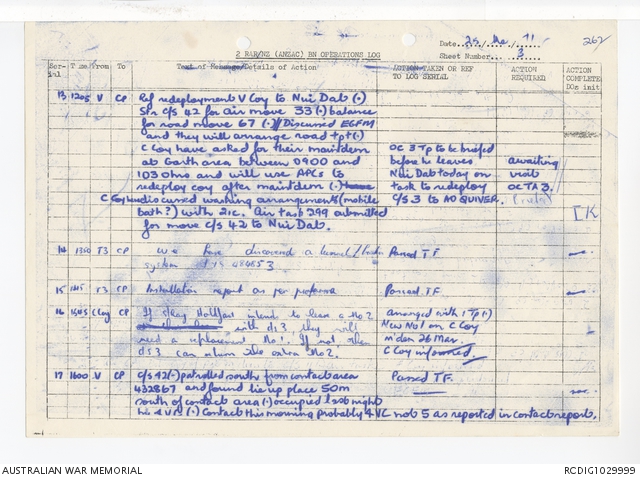 Date 25 Mar 71
262
2 RAR/NZ (ANZAC) BN OPERATIONS LOG
Sheet Number 3
Ser-ial Time From To Text of Message/Details of Action ACTION TAKEN OR REF TO LOG SERIAL ACTION REQUIRED ACTION COMPLETE DOs init
13 1205 V CP Ref redeployment V Coy to Nui Dat (.)
Sta c/s 42 for air move 33 (.) balance
for road move 67 (.) Discussed EGFM
and they will arrange road tpt (.)
C Coy have asked for their maintdem
at Garth area between 0900 and
1030hrs and will use APCs to
redeploy coy after maintdem (.)
C Coy discussed washing arrangements (mobile
bath?) with 2ic. Air task 299 submitted
for move c/s 42 to Nui Dat.
OC 3 Tp to be briefed
before he leaves
Nui Dat today on
task to redeploy
c/s 3 to AO QUIVER.
awaiting
visit
OC TA 3.
14 1350 T3 CP We have discovered a tunnel
system 484653
Passed TF
15 T3 CP Installation report as per proforma
Passed TF.
16 1545 C Coy CP If stay Hollfast intend to leave a No2
with dt3, they will
need a replacement No1. If not, then
dt3 can return the extra No2.
arranged with 1 Tp (.)
New No1 on C Coy
m'dem 26 Mar.
C Coy informed.
17 1600 V CP C/s 42 (.) patrolled south from contact area
432867 and found lie up place 50m
south of contact area (.) occupied last night
by 4 VC (.) Contact this morning probably 4 VC not 5 as reported in contact report.
Passed TF.
AUSTRALIAN WAR MEMORIAL
RCDIG1029999